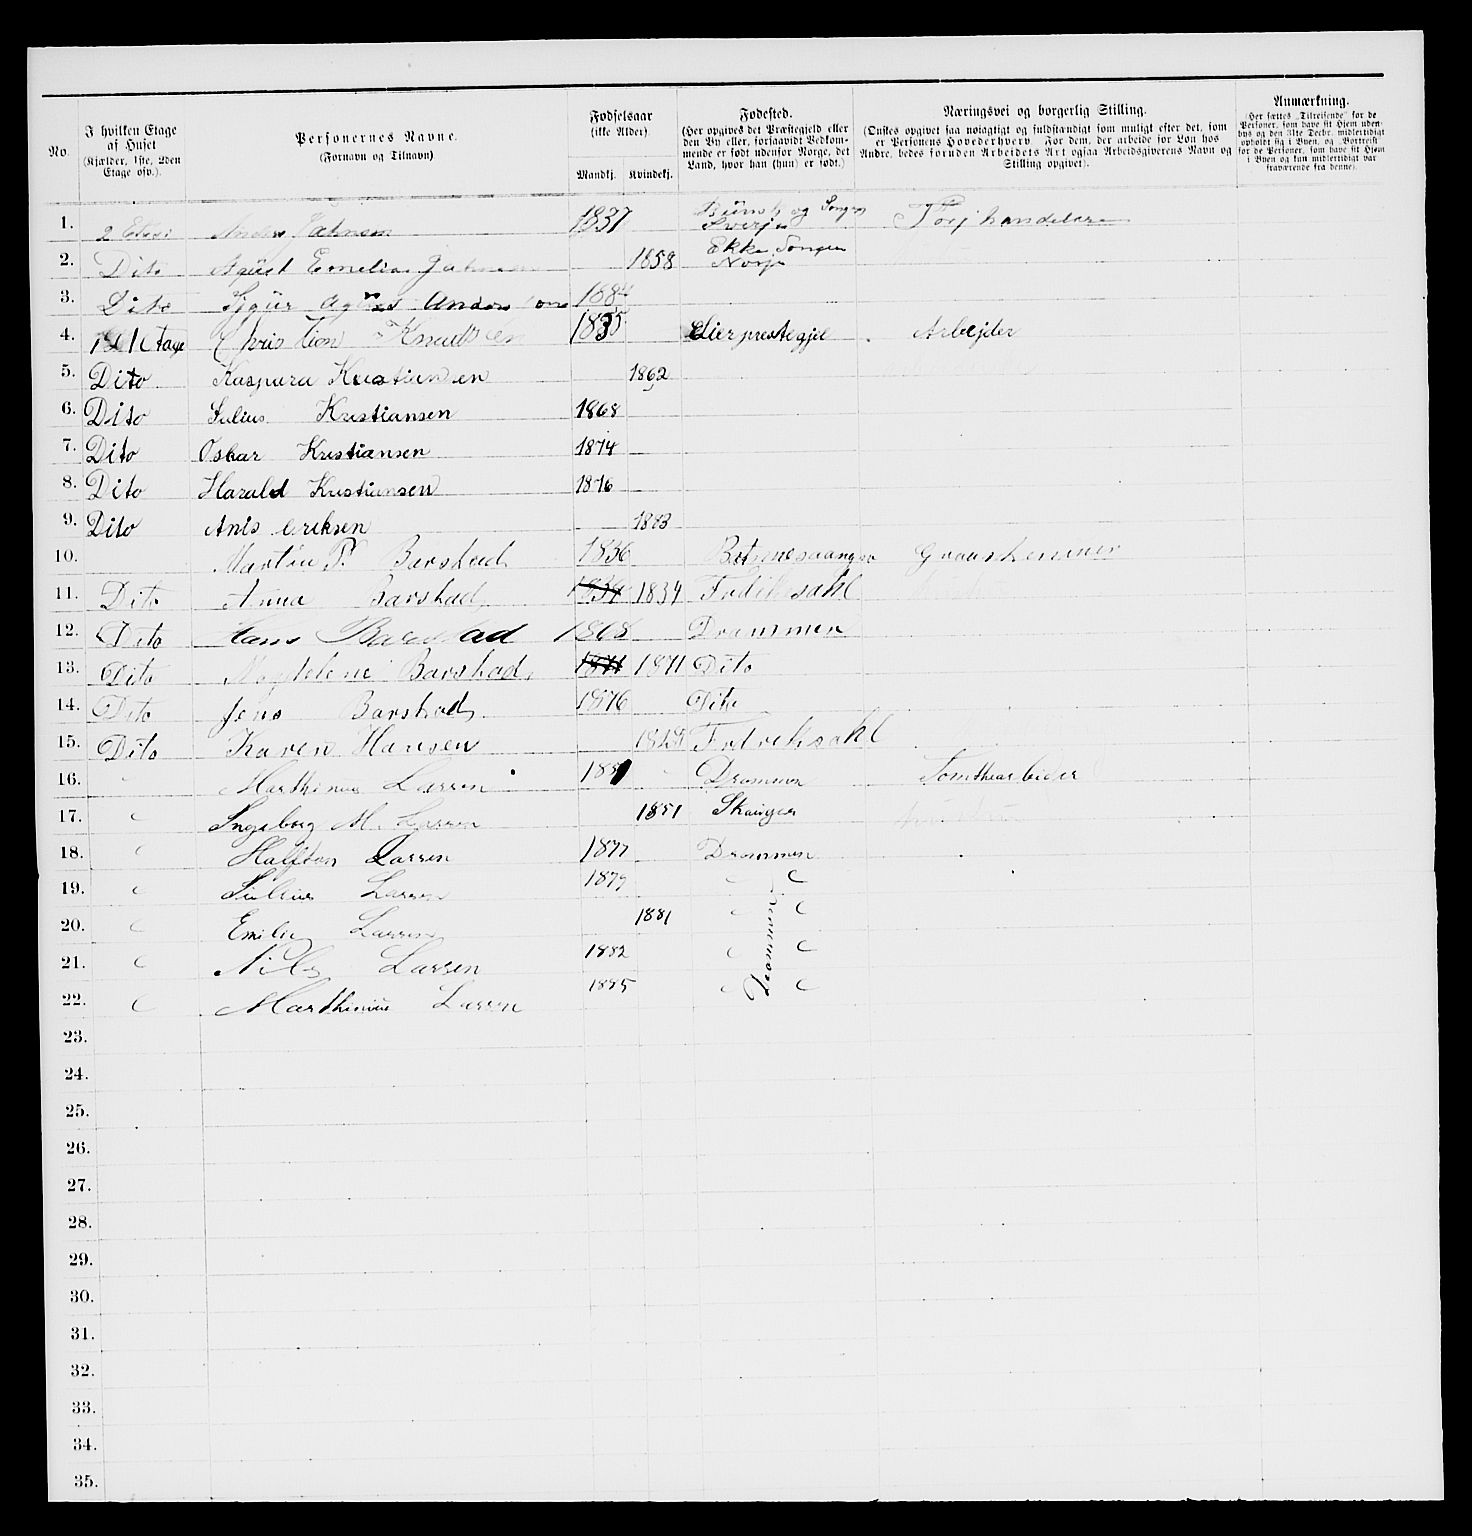 No. I hvilken Etage af Huset (Kjælder, 1ste, 2den Etage osv.). Personernes Navne. (Fornavn og Tilnavn) Fødselsaar (ikke Alder) Mandkj. Kvindekj. Fødested. (Her opgives det Præstegjeld eller den By eller, forsaavidt Vedkommende er født udenfor Norge, det Land, hvor han (hun) er født.) Næringsvei og borgerlig Stilling. (Ønskes opgivet saa nøiagtigt og fuldstændigt som muligt efter det, som er Personens Hovederhverv. For dem, der arbeide for Løn hos Andre, bedes foruden Arbeidets Art ogsaa Arbeidsgiverens Navn og Stilling opgivet). Anmærkning. (Her sættes „Tilreisende" for de Personer, som have sit Hjem udenbys og den 31te Decbr. midlertidigt opholdt sig i Byen, og „Bortreist" for de Personer, som have sit Hjem i Byen og kun midlertidigt var fraværende fra denne).
1. 2 1837 Sverje Torjhandlare
2. Dito Emelia 1858 Norje
3. Dito 1884
4. 1st Etage Christian Knudsen 1835 Lier prestegjel Arbejder
5. Dito Kaspara Kristiansen 1862
6. Dito Julius Kristiansen 1868
7. Dito Oskar Kristiansen 1874
8. Dito Harald Kristiansen 1876
9. Dito Anis Eriksen 1883
10. Martin P. Barstad 1836
11. Dito Anna Barstad 1834 1834 Fredriksahl
12. Dito Hans Barstad 1868 Drammen
13. Dito Magdelene Barstad 1871 1871 Dito
14. Dito Jens Barstad 1876 Dito
15. Dito Karen Hansen Fredriksahl
16. Marthinus Larsen Drammen Tomthearbeider
17. Ingeborg M. Larsen 1851 Skauger
18. Halfdan Larsen 1877 Drammen
19. Julius Larsen 1879
20. Emilie Larsen 1881
21. Nils Larsen 1882
22. Marthinus Larsen 1885 Drammen
23.
24.
25.
26.
27.
28.
29.
30.
31.
32.
33.
34.
35.